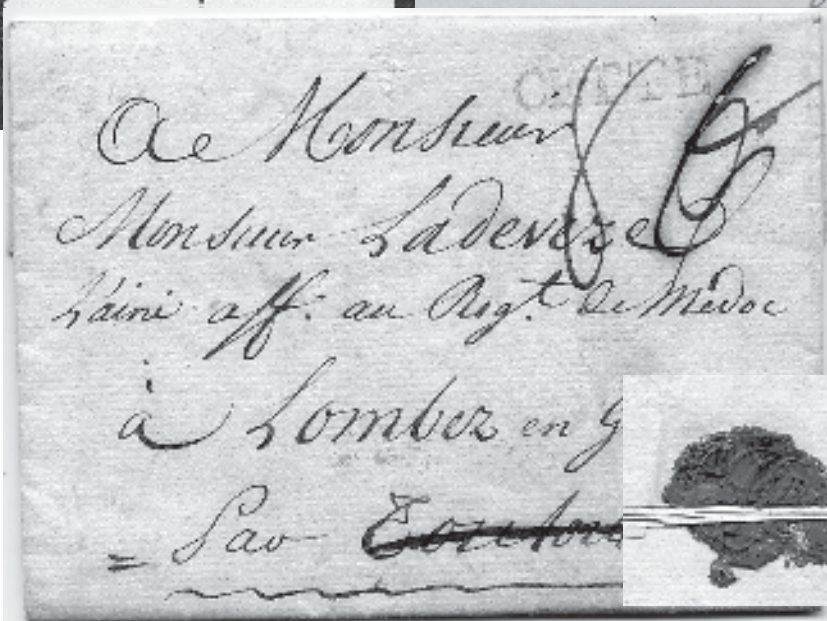 CETTE
A Monsieur
Monsieur Ladeveze
L'ainé off. au Regt. de Médoc
à Lombez en G
= Par